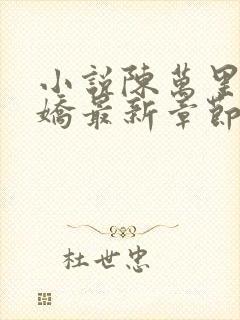 小說陳萬里
嬌最新章節
杜世忠